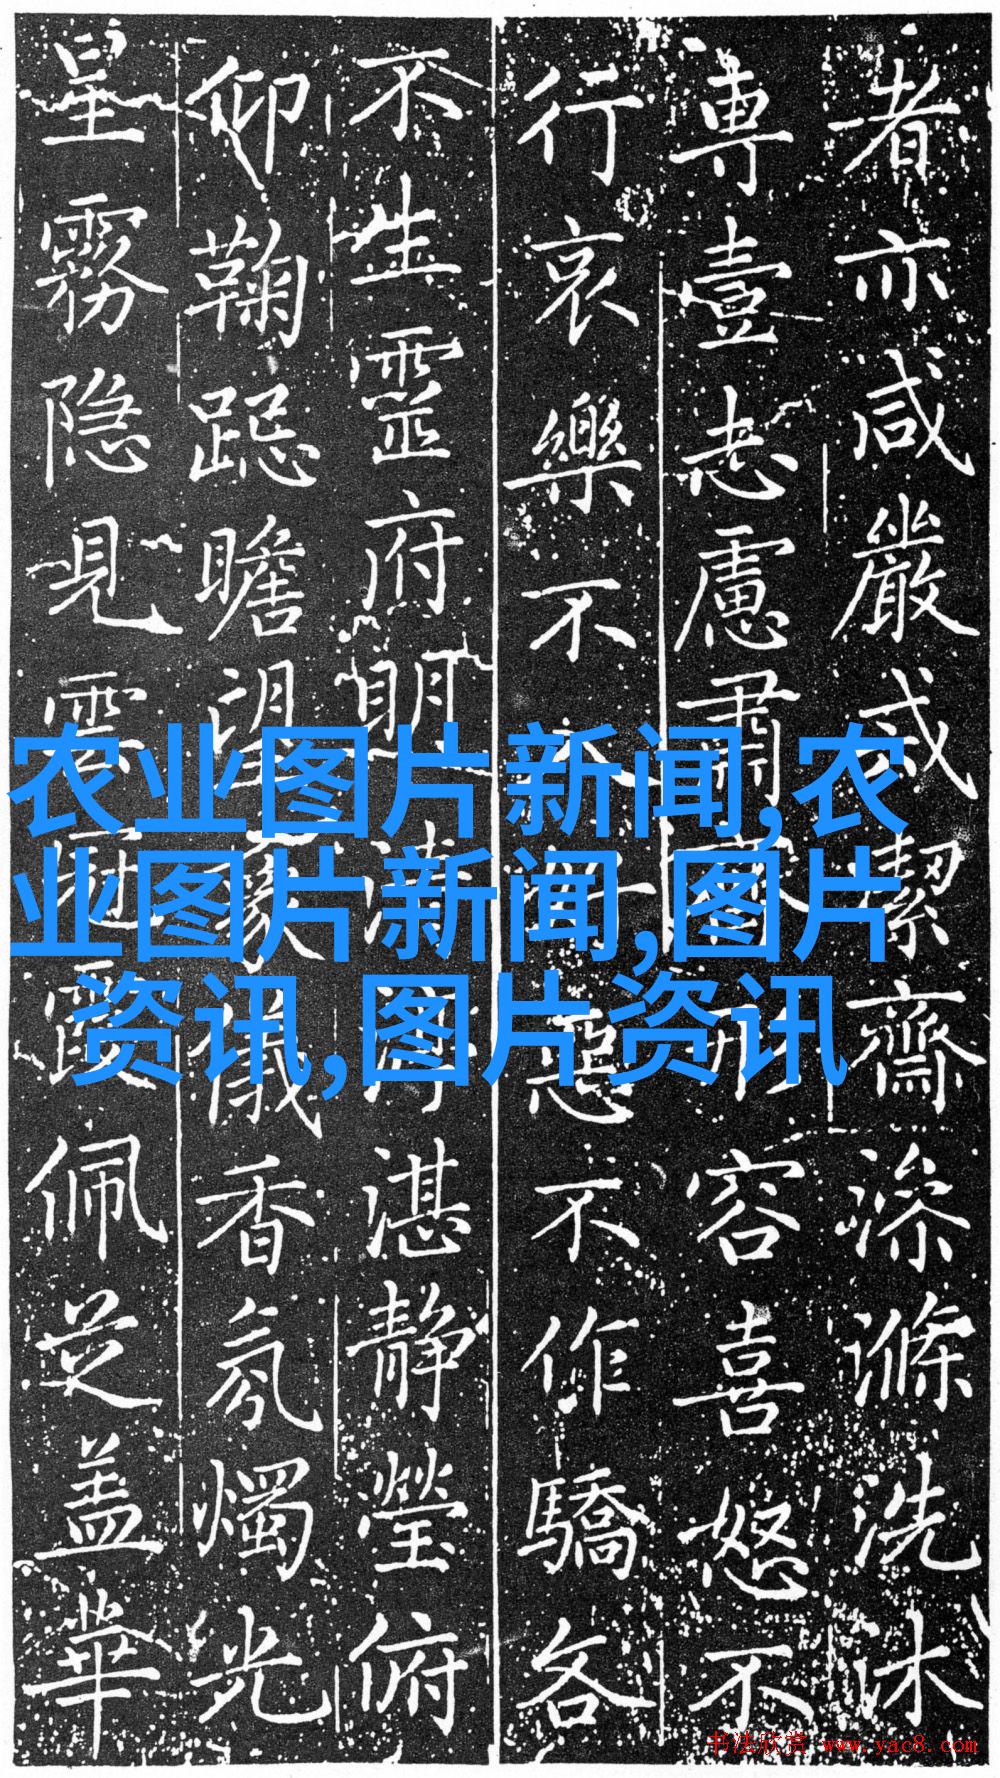 者亦咸嚴戒絜齋澡滌洗沐
專壹志慮肅形容喜怒不
行哀樂不惡不作驕各
不生靈府朙清湛静瑩俯
仰鞠跽瞻望象儀香氛燭光
星霧隐見雲冠霞佩芝盖華
农业图片新闻,农
业图片新闻,图片
资讯,图片资讯
书法欣赏 www.yac8.com